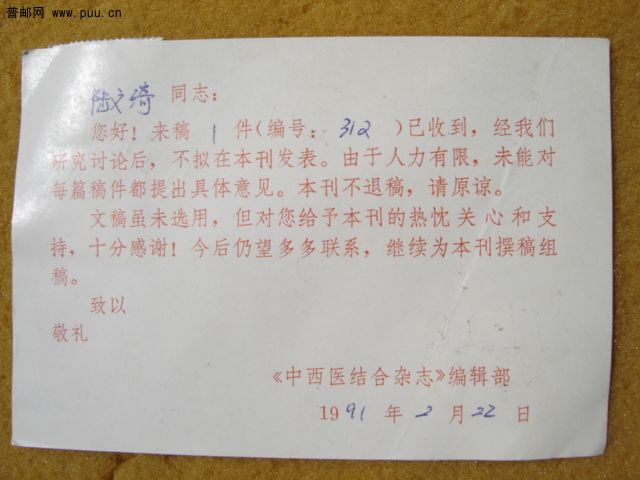 普邮网 www.puu.cn
陆文琦 同志：
您好！来稿 1 件（编号：312 ）已收到，经我们
研究讨论后，不拟在本刊发表。由于人力有限，未能对
每篇稿件都提出具体意见。本刊不退稿，请原谅。
文稿虽未选用，但对您给予本刊的热忱关心和支
持，十分感谢！今后仍望多多联系，继续为本刊撰稿组
稿。
致以
敬礼
《中西医结合杂志》编辑部
1991 年 2 月 22 日